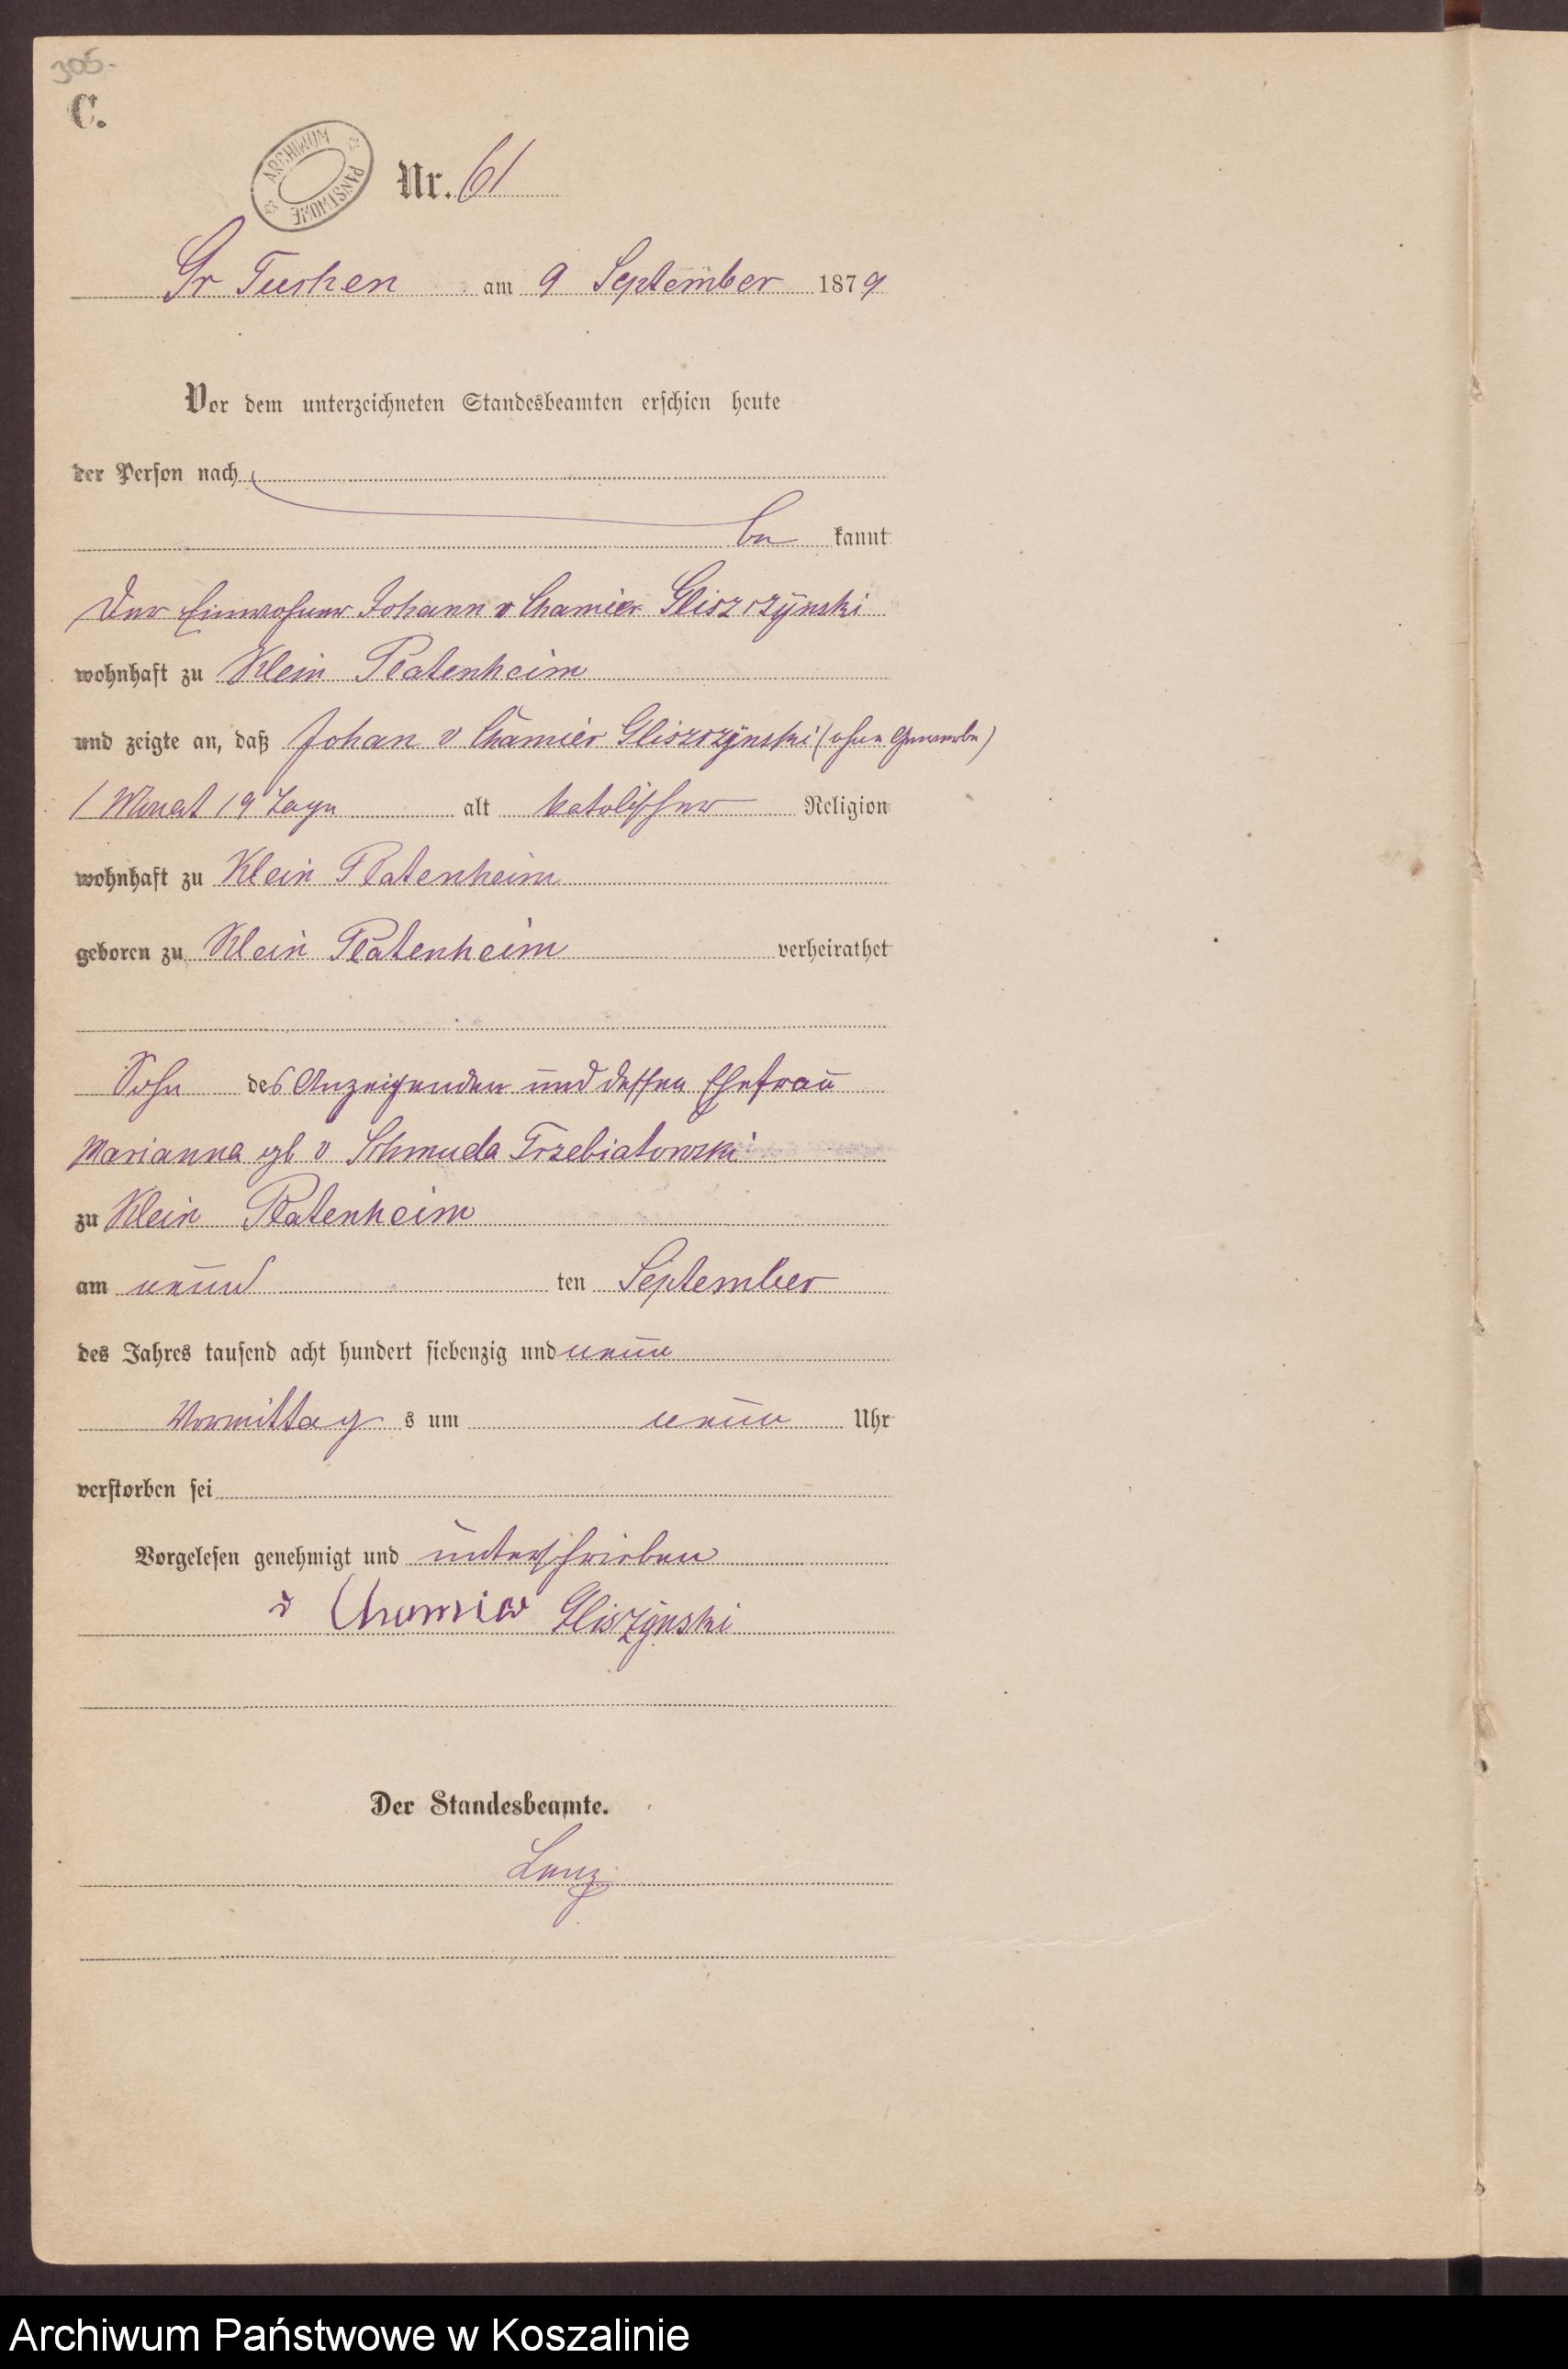 305.
C.
ARCHIWUM PAŃSTWOWE
Nr. 61
Gr Tuchen am 9 September 1879
Vor dem unterzeichneten Standesbeamten erschien heute
der Person nach
be kannt
Der Einwohner Johann v Chamier Gliszczÿnski
wohnhaft zu Klein Platenheim
und zeigte an, daß Johan v Chamier Gliszczÿnski (ohne Gewerbe)
1 Monat 19 Tage alt katolischer Religion
wohnhaft zu Klein Platenheim
geboren zu Klein Platenheim verheirathet
Sohn des Anzeigenden und dessen Ehefrau
Marianna gb v Schmuda Trzebiatowski
zu Klein Platenheim
am neun ten September
des Jahres tausend acht hundert siebenzig und neun
Vormittag s um neun Uhr
verstorben sei
Vorgelesen genehmigt und unterschrieben
v Chamier Gliszÿnski
Der Standesbeamte.
Archiwum Państwowe w Koszalinie